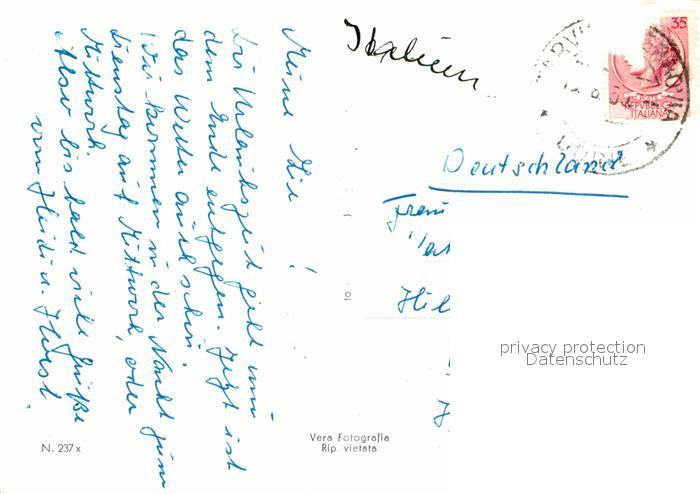 Meine Hie !
Die Urlaubszeit geht nun
dem Ende entgegen. Jetzt ist
das Wetter auch schön.
Wir kommen in der Nacht zum
Dienstag auf Mittwoch, oder
Mittwoch.
Also bis bald viele Grüße
von Heidi u. Horst.
Italien
35
REPVBBLICA
ITALIANA
Deutschland
Frau
Hil
privacy protection
Datenschutz
N. 237 x
Vera Fotografia
Rip. vietata